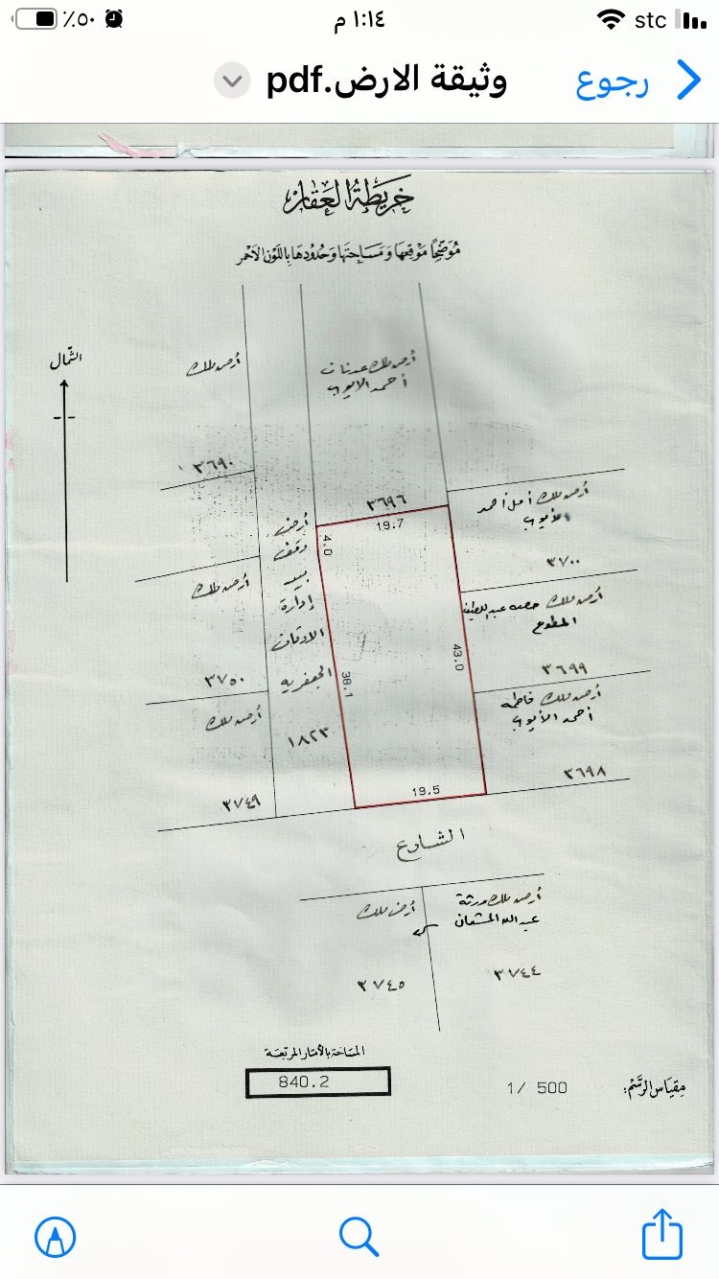 ١:١٤ م
٪٥٠
stc
رجوع
وثيقة الارض.pdf
خريطة العقار
موضحاً موقعها ومساحتها وحدودها باللون الأحمر
الشمال
أرض ملك
٣٦٩٠
أرض ملك عدنان
أحمد الايوب
٣٦٩٦
19.7
4.0
أرض ملك أمل أحمد
الأيوب
٣٧٠٠
أرض
وقف
بيد
إدارة
الاوقاف
الجعفريه
١٨٢٣
أرض ملك
٣٧٥٠
أرض ملك حصه عبداللطيف
المطوع
٣٦٩٩
43.0
38.1
أرض ملك فاطمه
أحمد الأيوب
٣٦٩٨
أرض ملك
٣٧٤٩
19.5
الشارع
أرض ملك ورثة
عبدالله المشعان
٣٧٤٤
أرض ملك
٣٧٤٥
المساحة بالأمتار المربعة
840.2
مقياس الرسم:
1/ 500